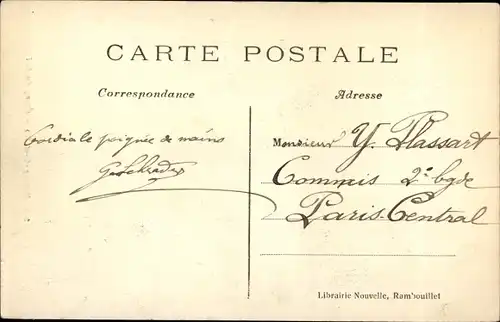 CARTE POSTALE
Correspondance
Adresse
Cordiale poignée de mains
Monsieur Y. Plassart
Commis 2e bgde
Paris-Central
Librairie Nouvelle, Rambouillet